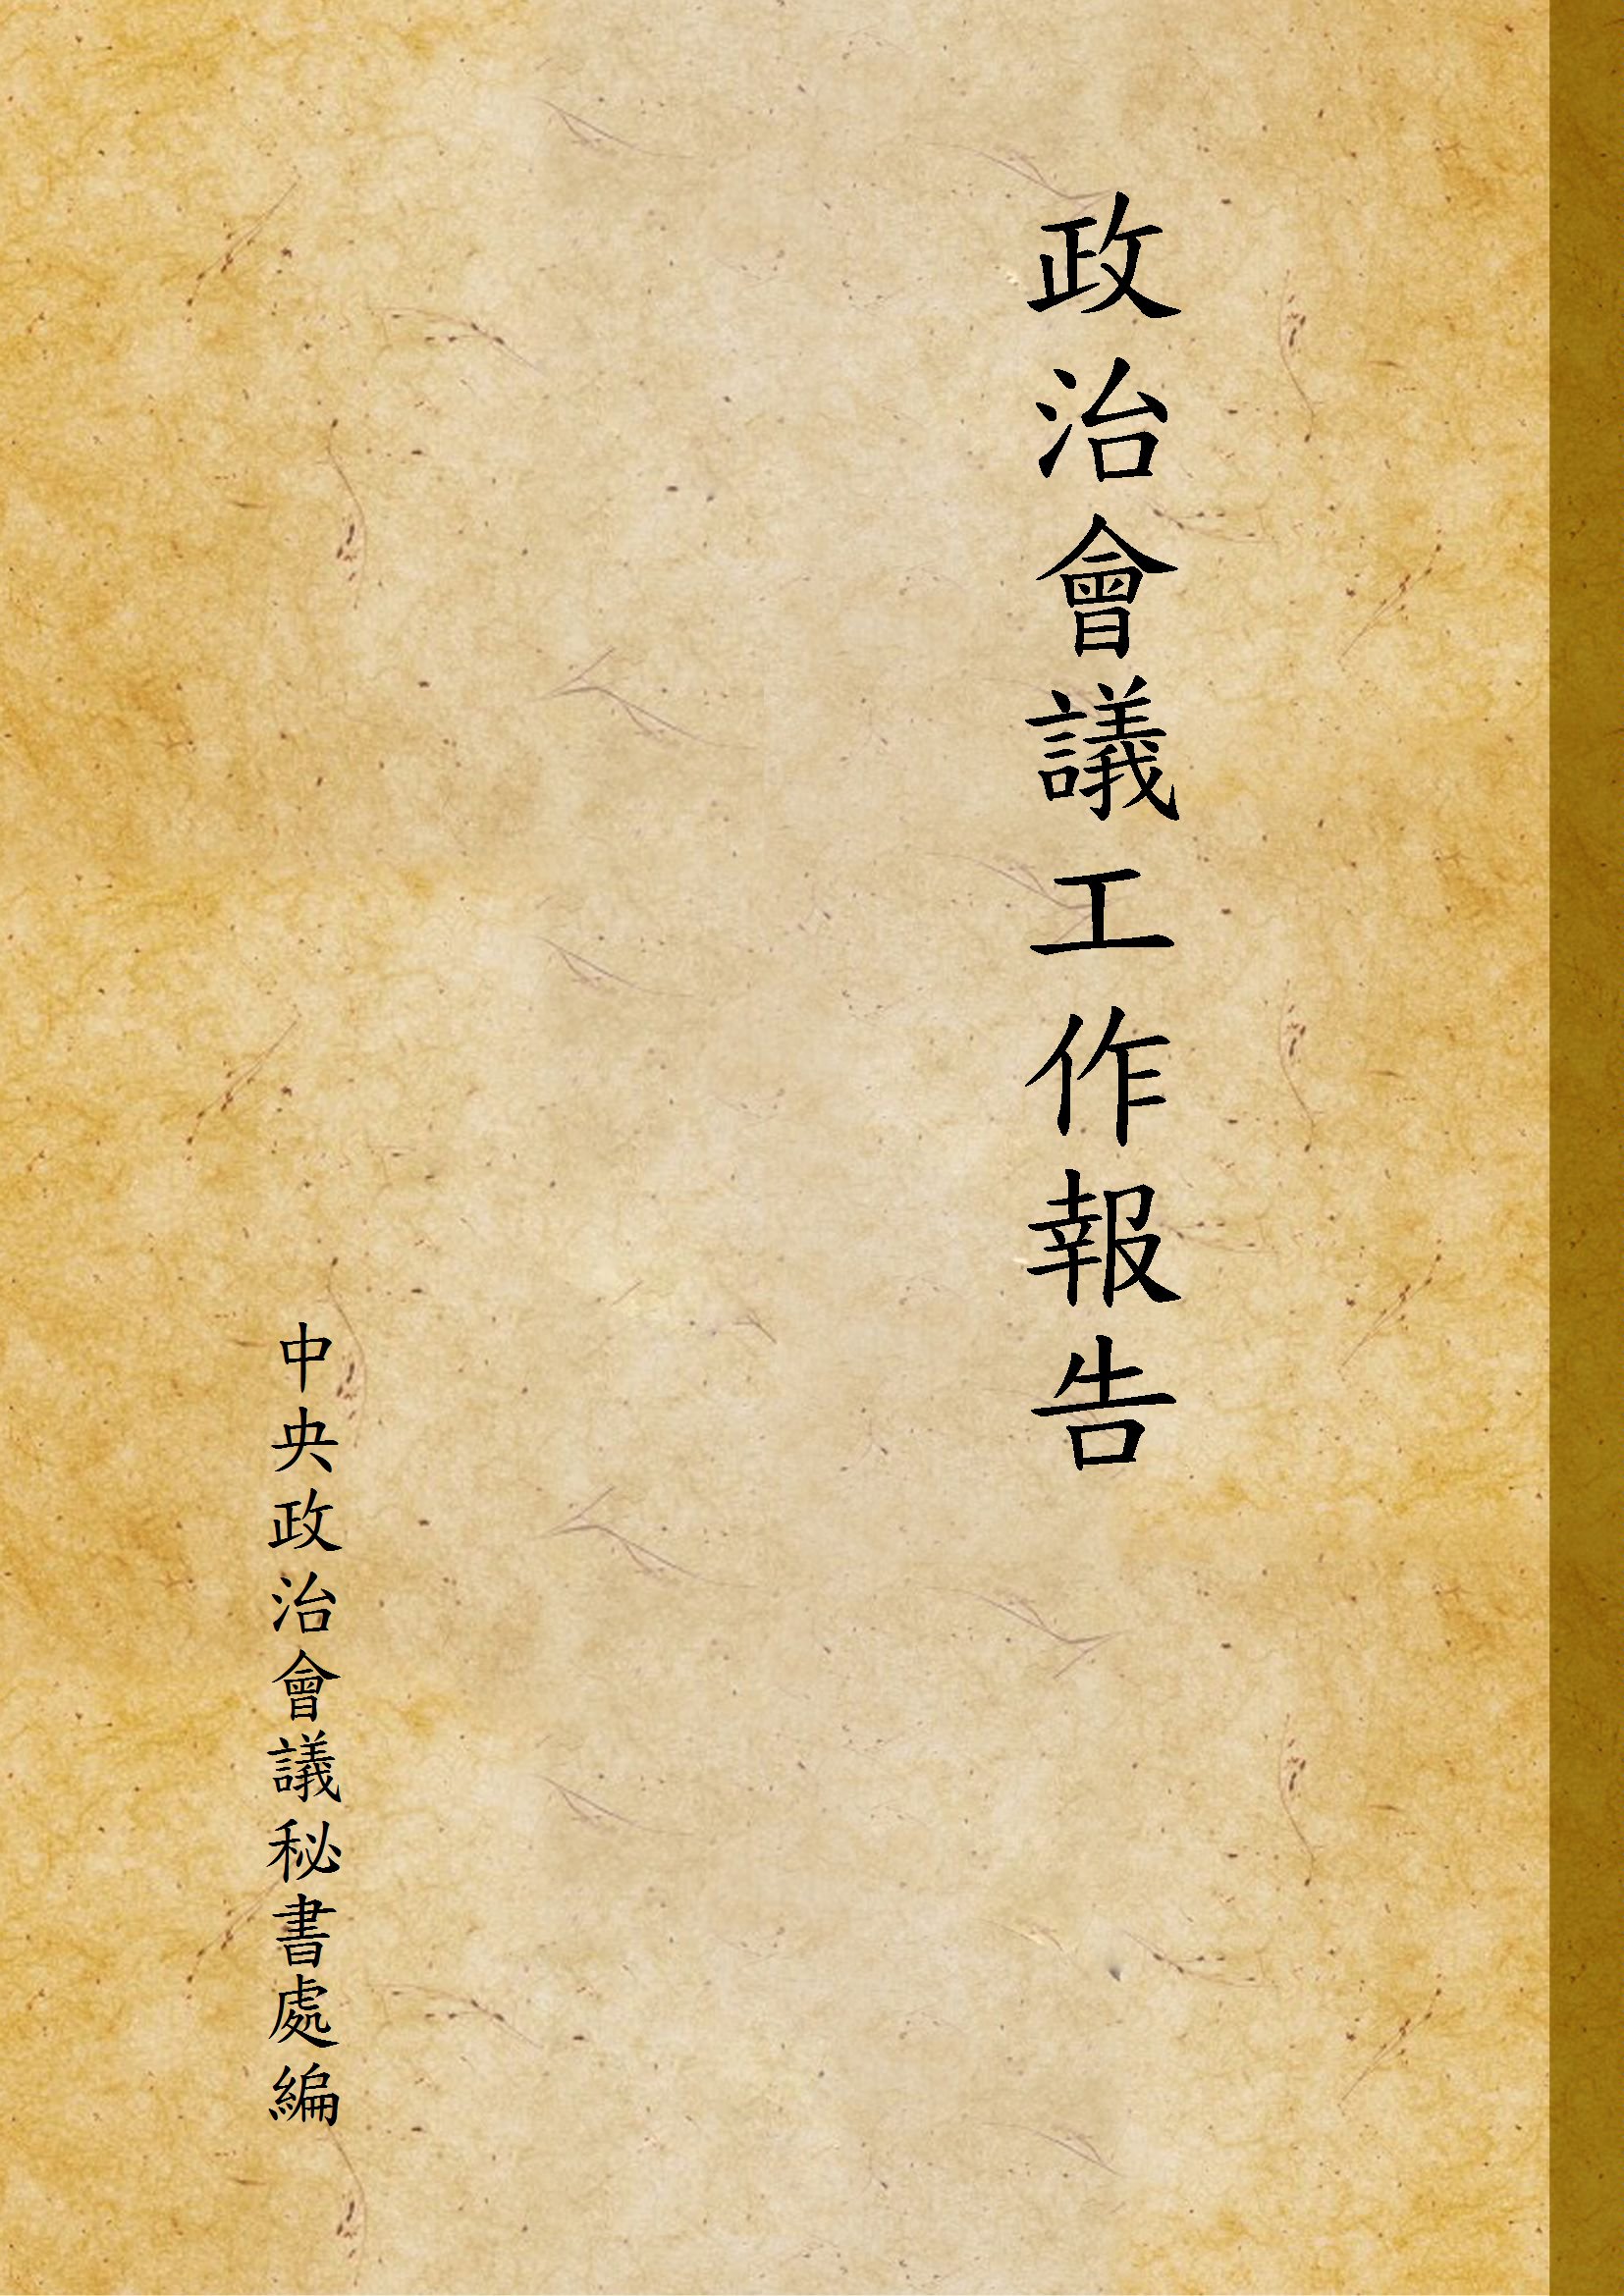 政治會議工作報告
中央政治會議秘書處編